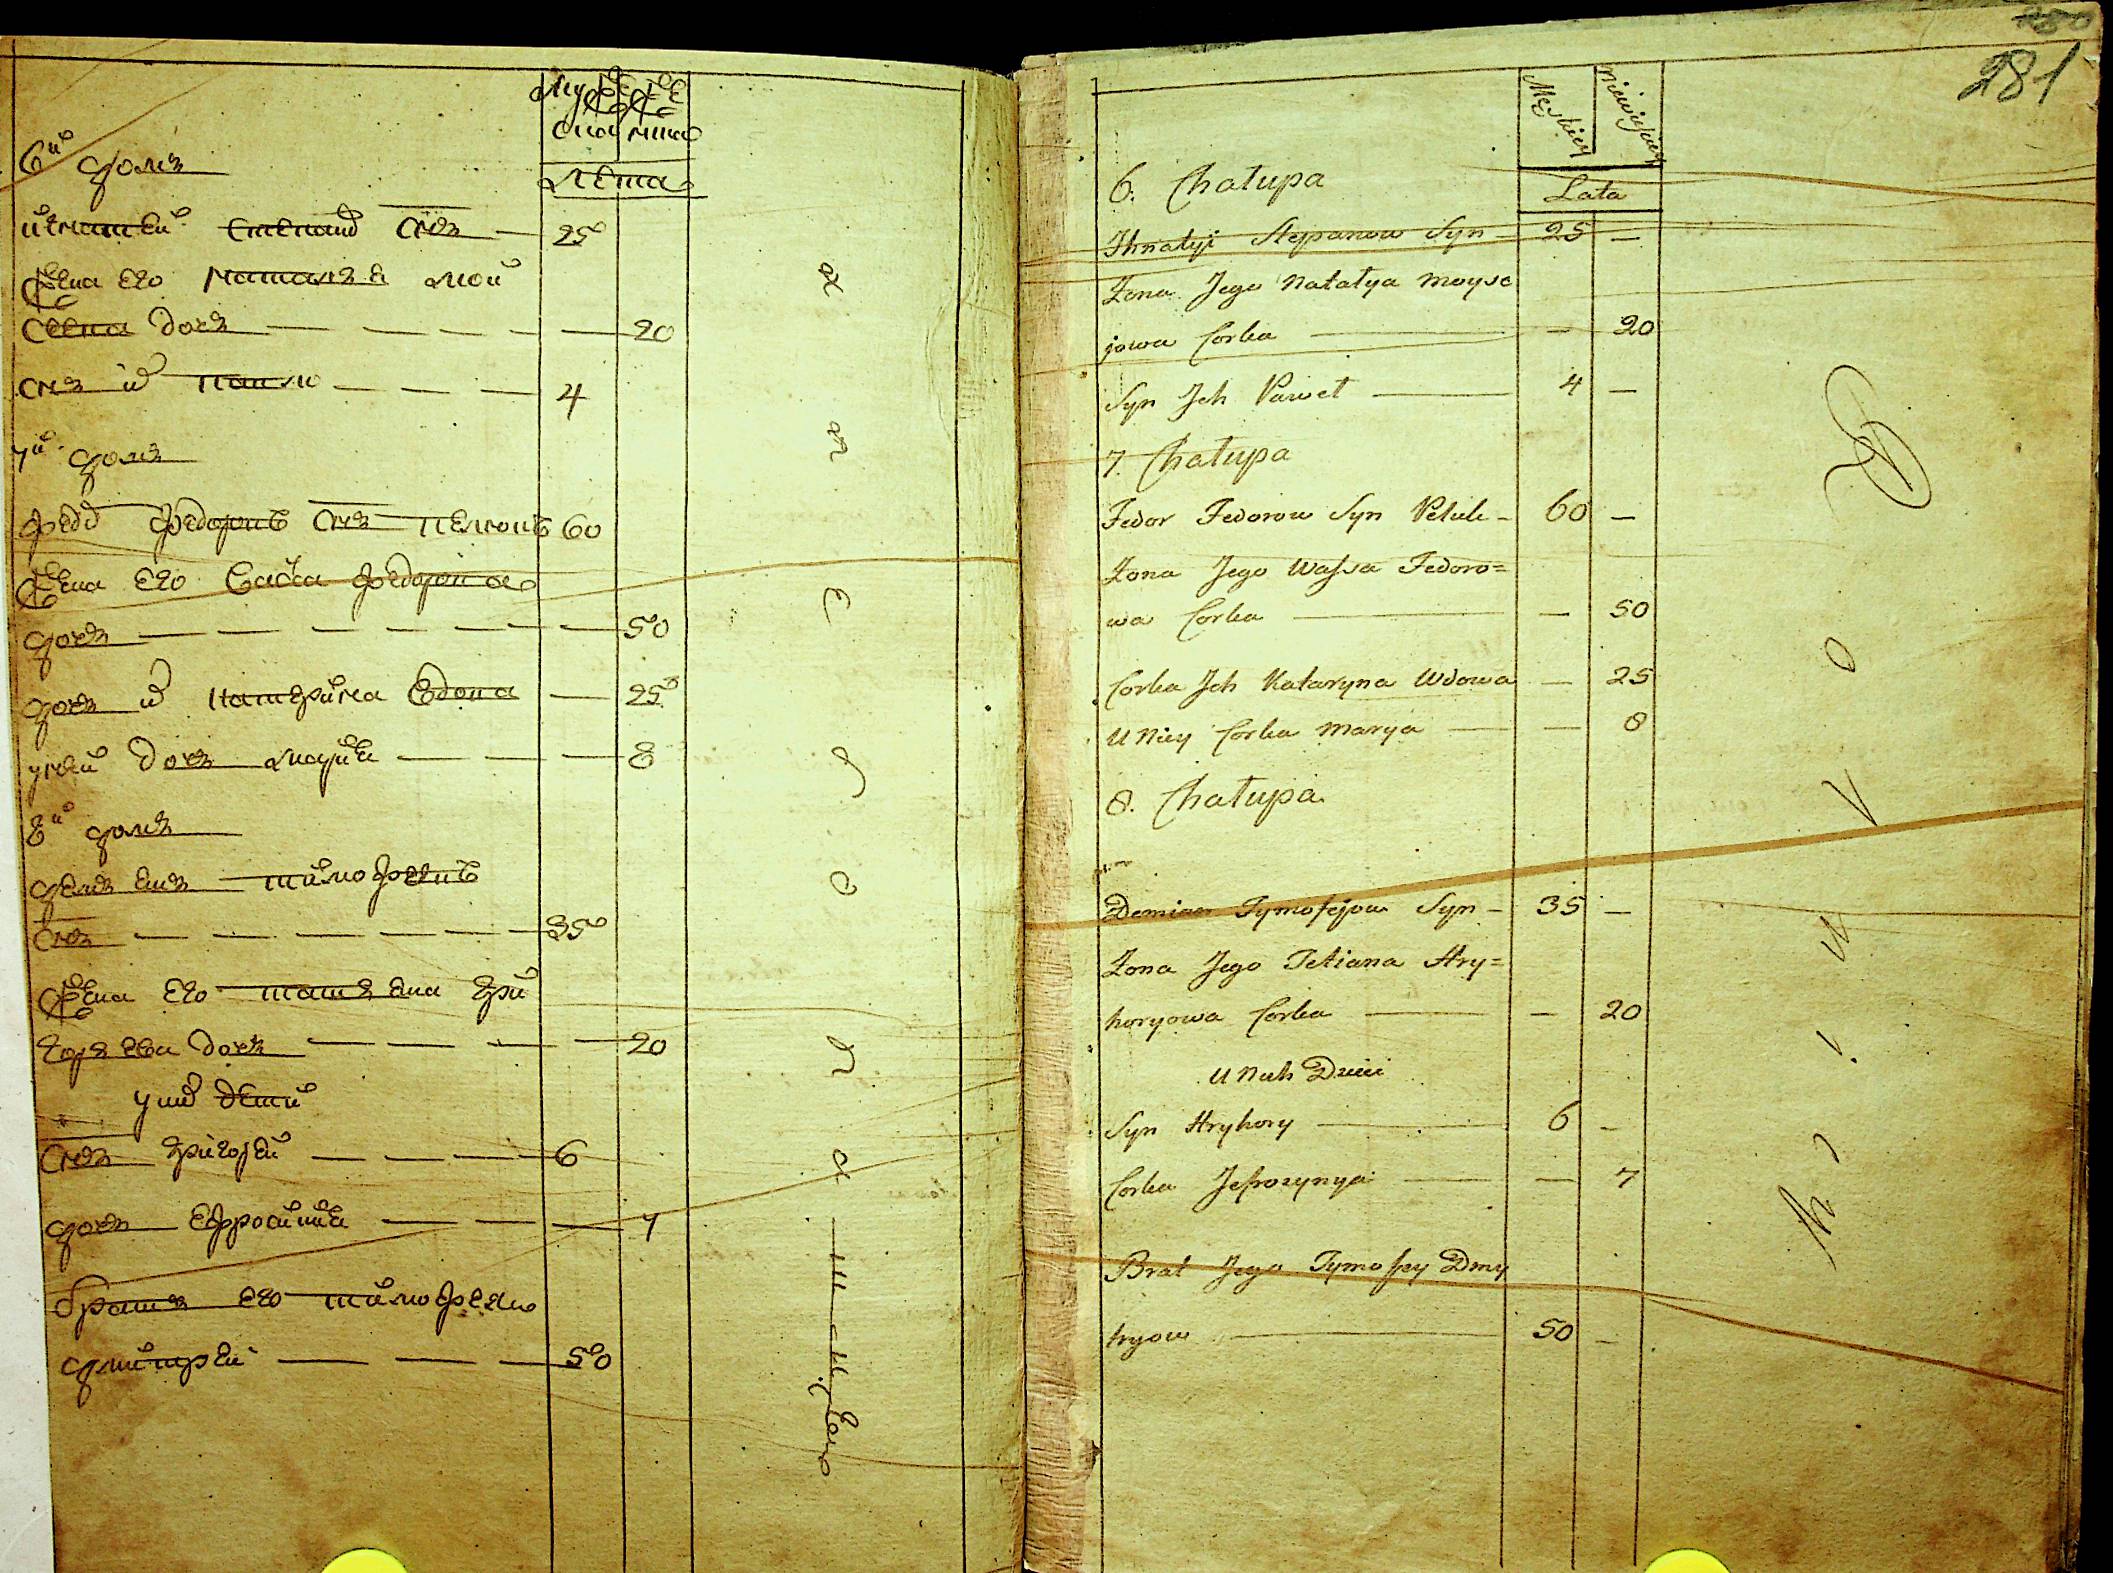 Муже Же
ска нска
лѣта
6й домъ
игнатей степановъ снъ — 25
жена его наталья мой
сеева дочъ — 20
снъ их павло — 4
7й домъ
федоръ федоровъ снъ 60
жена его васса федорова
дочъ — 50
дочъ их катерина вдова — 25
у ней дочъ марія — 8
8й домъ
демьянъ тимофеевъ
снъ — 35
жена его татьяна гри
горьева дочъ — 20
у них дети
снъ григорей — 6
дочъ ефросинія — 7
братъ его тимофей
дмитрей — 50
280
281
Męskiey
Niewieściey
Lata
6. Chałupa
Ihnatyi Stepanow Syn – 25 –
Żona Jego Natalya Moyse
jowa Corka — – 20
Syn Jch Paweł — 4 –
7. Chałupa
Fedor Fedorow Syn – 60 –
Żona Jego Wassa Fedoro=
wa Corka — – 50
Corka Jch Kataryna Wdowa – 25
U Niey Corka Marya — – 8
8. Chałupa
Demian Tymofejow Syn – 35 –
Żona Jego Tetiana Hry=
horyowa Corka — – 20
U Nich Dzieci
Syn Hryhory — 6 –
Corka Jefrozynya — – 7
Brat Jego Tymofey Dmy
tryow — 50 –